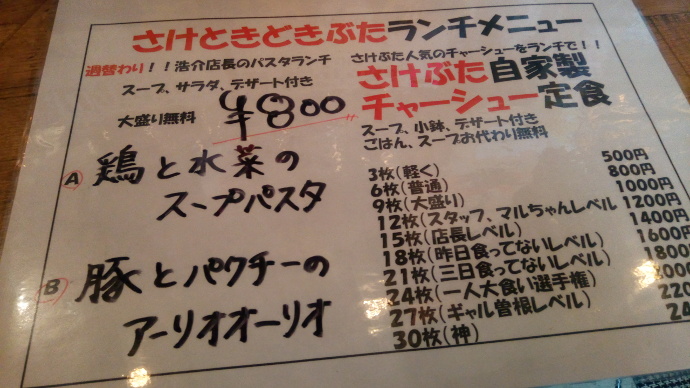 さけときどきぶたランチメニュー
週替わり！！浩介店長のパスタランチ
スープ、サラダ、デザート付き
大盛り無料
¥800
A 鶏と水菜の
スープパスタ
B 豚とパクチーの
アーリオオーリオ
さけぶた人気のチャーシューをランチで！！
さけぶた自家製
チャーシュー定食
スープ、小鉢、デザート付き
ごはん、スープお代わり無料
3枚(軽く) 500円
6枚(普通) 800円
9枚(大盛り) 1000円
12枚(スタッフ、マルちゃんレベル 1200円
15枚(店長レベル) 1400円
18枚(昨日食ってないレベル) 1600円
21枚(三日食ってないレベル) 1800
24枚(一人大食い選手権) 000
27枚(ギャル曽根レベル) 220
30枚(神) 24